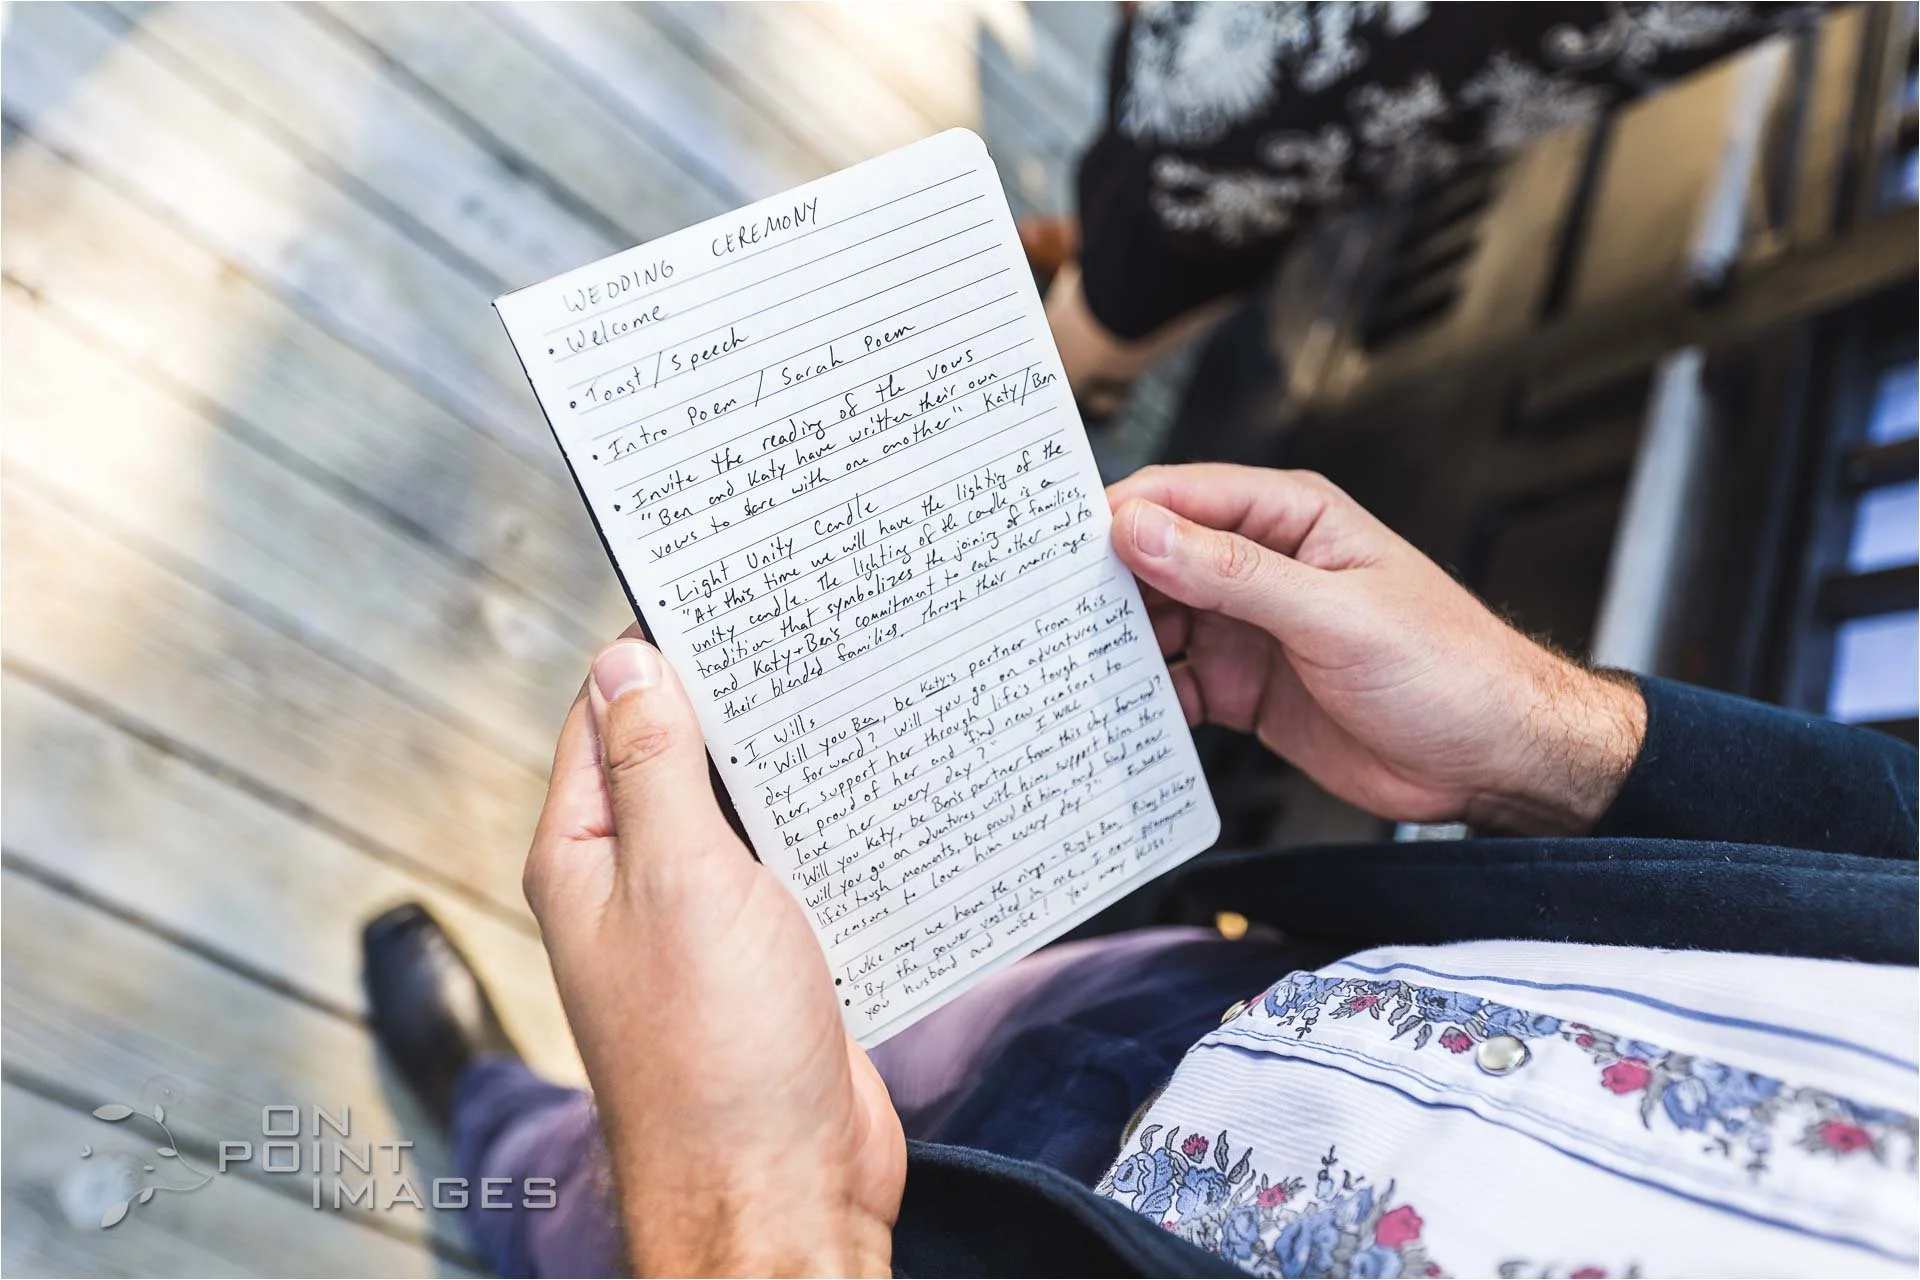 WEDDING CEREMONY
• Welcome
• Toast/Speech
• Intro Poem / Sarah Poem
• Invite the reading of the vows
"Ben and Katy have written their own
vows to share with one another" Katy/Ben
• Light Unity Candle
"At this time we will have the lighting of the
unity candle. The lighting of the candle is a
tradition that symbolizes the joining of families,
and Katy+Ben's commitment to each other and to
their blended families, through their marriage.
• I wills
"Will you Ben, be Katy's partner from this
day forward? Will you go on adventures with
her, support her through life's tough moments,
be proud of her and find new reasons to
love her every day?" I will
"Will you Katy, be Ben's partner from this day forward?
Will you go on adventures with him, support him thru
life's tough moments, be proud of him, and find new
reasons to love him every day?" I will
• Luke may we have the rings - Ben Ring to Katy
• "By the power vested in me, I now pronounce
you husband and wife! You may kiss!
ON
POINT
IMAGES